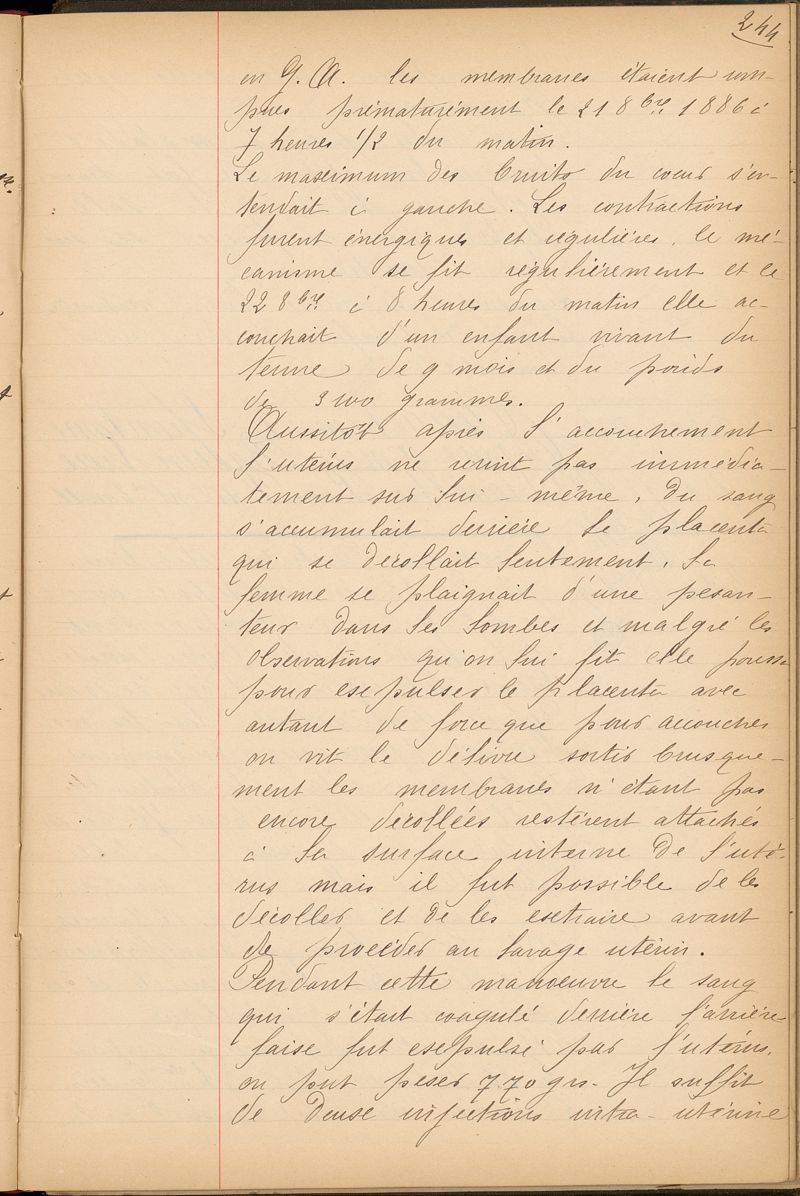 244
en G. A. les membranes étaient rom-
pues prématurément le 21 8bre 1886 à
7 heures 1/2 du matin.
Le maximum des bruits du cœur s'en-
tendait à gauche. Les contractions
furent énergiques et régulières, le mé-
canisme se fit régulièrement et le
22 8bre à 8 heures du matin elle ac-
couchait d'un enfant vivant du
terme de 9 mois et du poids
de 3100 grammes.
Aussitôt après l'accouchement
l'utérus ne revint pas immédia-
tement sur lui-même. Du sang
s'accumulait derrière le placenta
qui se décollait lentement. La
femme se plaignait d'une pesan-
teur dans les lombes et malgré les
observations qu'on lui fit elle poussa
pour expulser le placenta avec
autant de force que pour accoucher
on vit le délivre sortir brusque-
ment les membranes n'étant pas
encore décollées restèrent attachés
à la surface interne de l'uté-
rus mais il fut possible de les
décoller et de les extraire avant
de procéder au lavage utérin.
Pendant cette manœuvre le sang
qui s'était coagulé derrière l'arrière-
faise fut expulsé par l'utérus.
on put peser 770 grs. Il suffit
de deuse injections intra-utérine